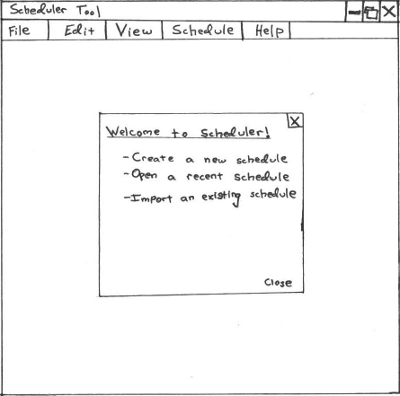 Scheduler Tool
File Edit View Schedule Help
Welcome to Scheduler!
-Create a new schedule
-Open a recent schedule
-Import an existing schedule
Close